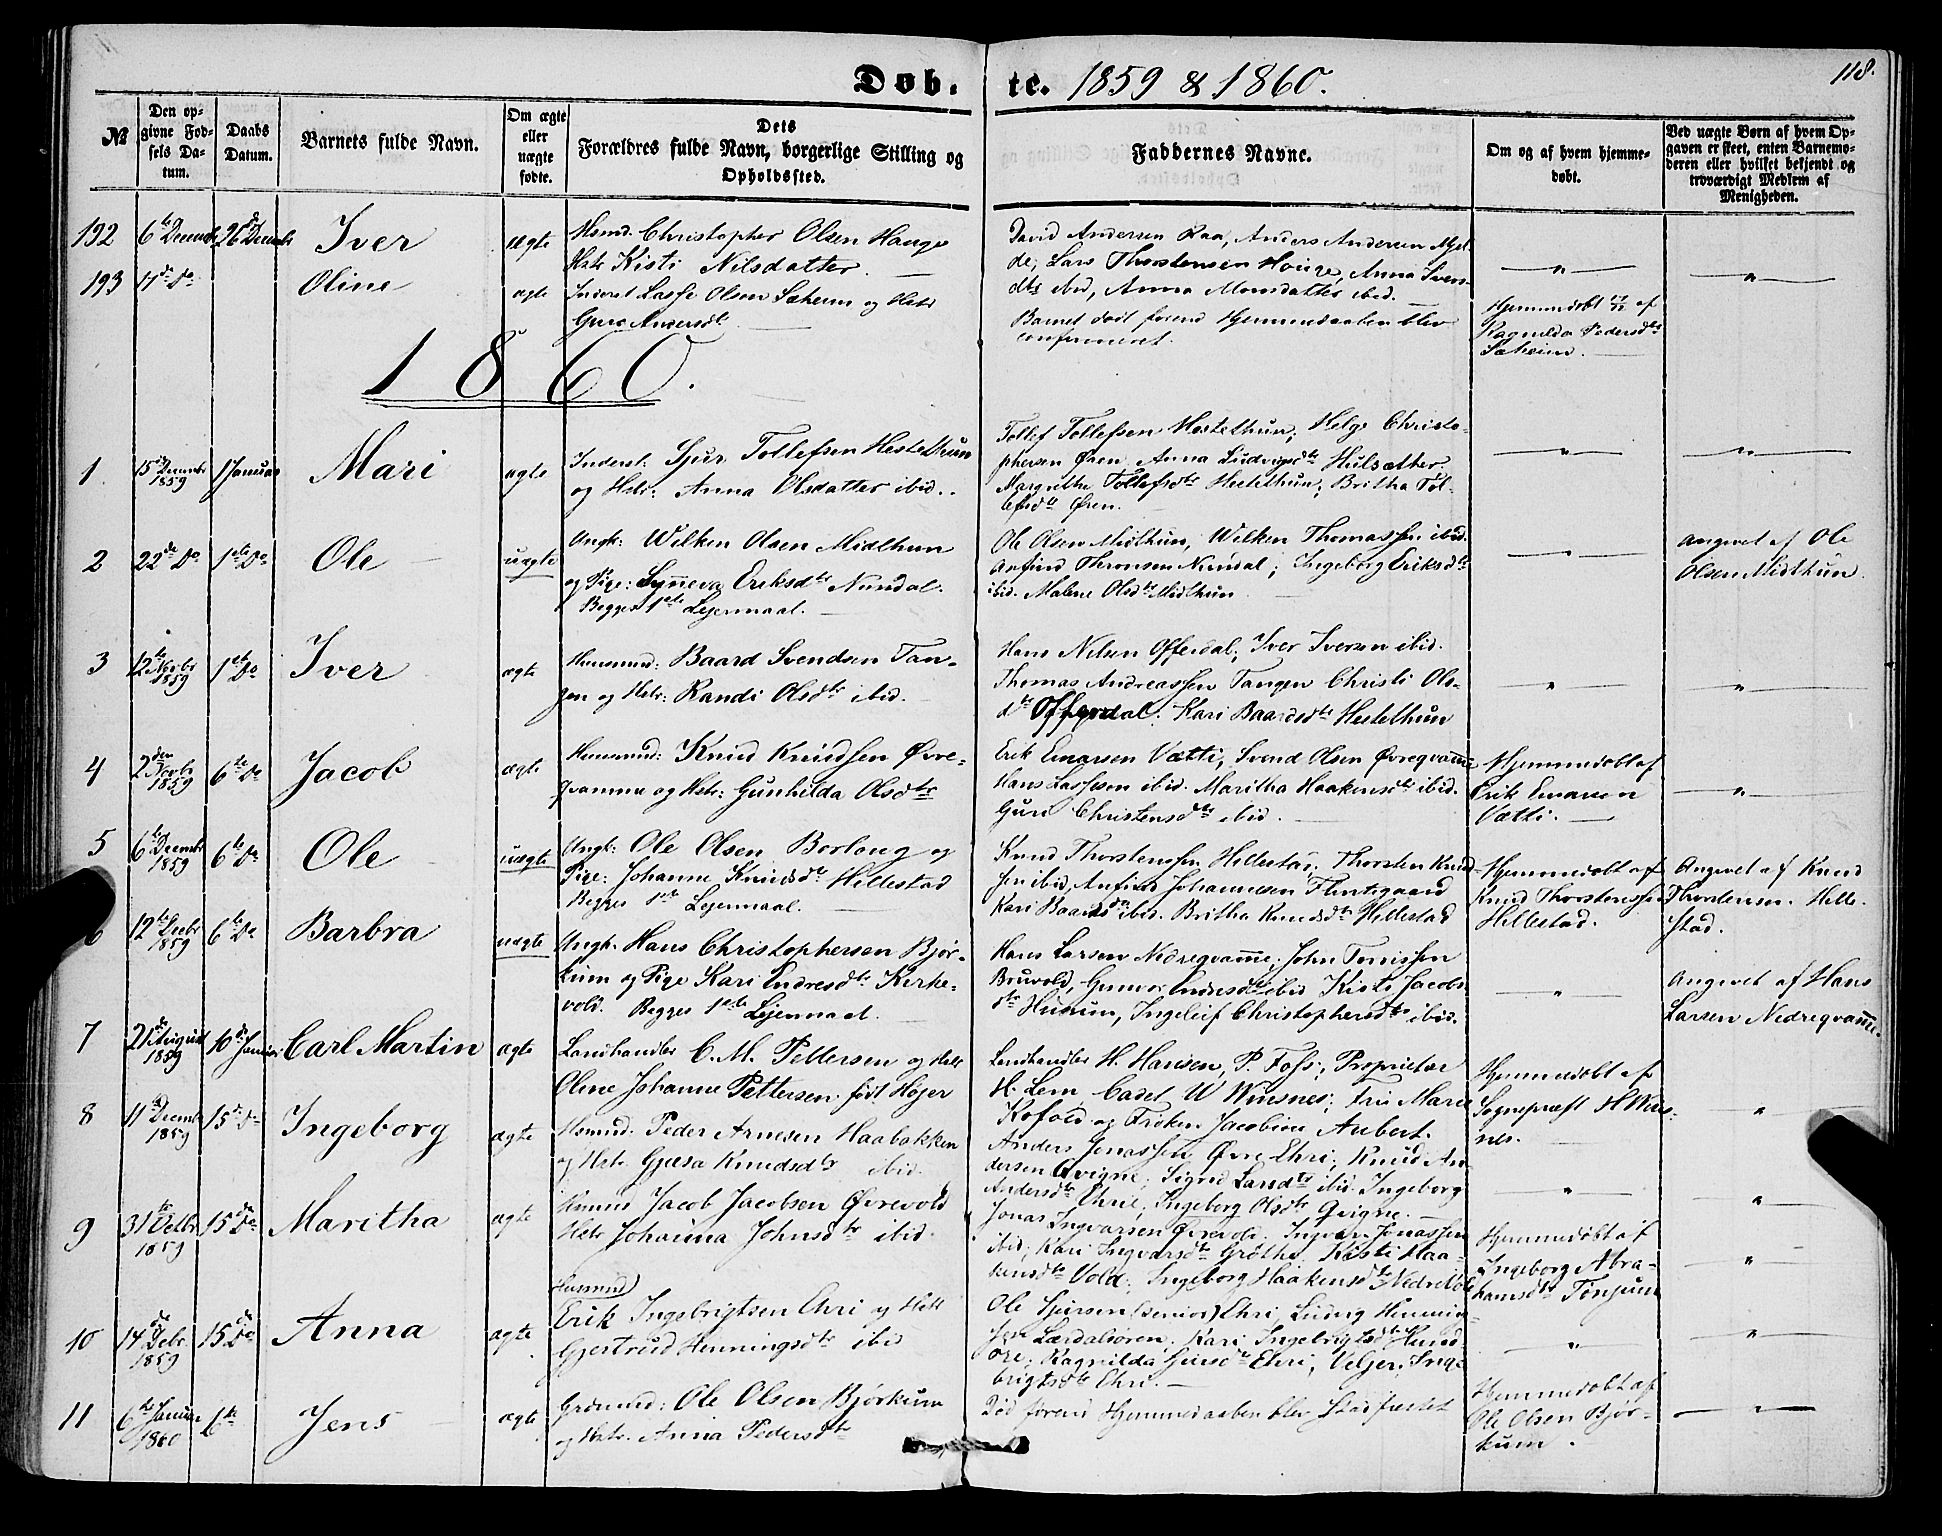 Døb- te. 1859 & 1860. 118.
№
Den op-
givne Fød-
sels Da-
tum.
Daabs
Datum.
Barnets fulde Navn.
Om ægte
eller
uægte
fødte.
Dets
Forældres fulde Navn, borgerlige Stilling og
Opholdssted.
Faddernes Navne.
Om og af hvem hjemme-
døbt.
Ved uægte Børn af hvem Op-
gaven er skeet, enten Barnemo-
deren eller hvilket bekjendt og
troværdigt Medlem af
Menigheden.
192 6te Decembr 26de Decembr Iver ægte
Hsmd. Christopher Olsen Hauge
Hstr Kisti Nilsdatter.
David Andersen Raa, Anders Andersen Mjel-
de, Lars Thorstensen Houge, Anna Svens-
dtr ibid, Anna Monsdatter ibid.
193 17de Do Oline ægte
Inderst Lasse Olsen Sæheim og Hstr
Guro Andersdtr
Barnet død førend Hjemmedaaben blev
confirmeret.
Hjemmedøbt af
Ragnilda Pedersdtr
Sæheim.
1860.
1 15de Decembr 1859 1 Januar Mari ægte
Inderst: Sjur Tollefsen Hestethun
og Hstr: Anna Olsdatter ibid.
Tollef Tollefsen Hestethun, Helge Christo-
phersen Øren, Anna Ludvigsdtr Hulsæther,
Margrethe Tollefsdtr Hestethun; Britha Tol-
lefsdtr Øren.
2 22de Do 1ste Do Ole uægte
Ungk: Wilken Olsen Midthun
og Pige: Synneva Eriksdtr Nundal.
Begges 1ste Lejermaal.
Ole Olsen Midthun, Wilken Thomassen ibid.
Anfind Thronsen Nundal; Ingeborg Eriksdtr
ibid. Malene Olsdtr Midthun
Angivet af Ole
Olsen Midthun.
3 12te Novbr 1859 1ste Do Iver ægte
Huusmd: Baard Svendsen Tan-
gen og Hstr: Randi Olsdtr ibid.
Hans Nilsen Offerdal; Iver Iversen ibid.
Thomas Andreassen Tangen Christi Ols-
dtr Offerdal; Kari Baardsdtr Hestethun
4 2den Novbr 1859 6te Do Jacob ægte
Huusmd: Knud Knudsen Øvre-
qvamme og Hstr: Gunhilda Olsdtr
Erik Enarsen Vætti, Svend Olsen Øvreqvamme
Hans Lassesen ibid. Maritha Haakensdtr ibid.
Guri Christensdtr ibid.
Hjemmedøbt af
Erik Enarsen
Vætti.
5 6te Decembr 1859 6te Do Ole uægte
Ungk: Ole Olsen Borlaug og
Pige: Johanne Knudsdtr Hillestad
Begges 1ste Lejermaal.
Knud Thorstenssen Hillestad, Thorsten Knud-
sen ibid, Anfind Johannesen Flintegaard
Kari Baardsdtr ibid. Britha Knudsdtr Hillestad
Hjemmedøbt af
Knud Thorstenssen
Hillestad.
Angivet af Knud
Thorstensen Hille-
stad.
6 12te Decbr 1859 6te Do Barbra uægte
Ungk. Hans Christophersen Bjør-
kum og Pige Kari Endresdtr Kirke-
vold. Begges 1ste Lejermaal.
Hans Larsen Nedreqvamme; John Tomissen
Bruvold, Gunvor Endresdtr ibid Kisti Jacobs-
dtr Husum, Ingeleif Christophersdtr ibid.
Angivet af Hans
Larsen Nedreqvamme.
7 21de August 1859 10de Januar Carl Martin ægte
Landhandler C. M. Pettersen og Hstr
Oline Johanne Pettersen født Højer
Landhandler H. Hansen, P. Foss; Proprietær
H. Lem, Cadet W Winsnes; Fru Marie
Kofoed og Frøken Jacobine Aubert.
Hjemmedøbt af
Sognepræst H Wins-
nes.
8 11de Decembr 1859 15de Do Ingeborg ægte
Hsmd: Peder Arnesen Haabakken
og Hstr. Gjøsa Knudsdtr ibid.
Anders Jonassen Øvre Ehri, Knud An-
dersen Qvigne, Sigrid Larsdtr ibid. Ingeborg
Andersdtr Ehrie; Ingeborg Olsdtr Qvigne.
9 31te Oktbr 1859 15de Do Maritha ægte
Husmd Jacob Jacobsen Øvrevold
Hstr Johanna Johnsdtr ibid.
Jonas Ingvarsen Øvrevold, Ingvar Jonassen
ibid, Kari Ingvarsdtr Grøthe. Kisti Haa-
kensdtr Vold; Ingeborg Haakensdtr Nedrevold
Hjemmedøbt af
Ingeborg Abra-
hamsdtr Tønjum
10 14de Decbr 1859 15de Do Anna ægte
Huusmd
Erik Ingebrigtsen Ehri og Hstr
Gjertrud Henningsdtr ibid
Ole Sjursen (senior) Ehri, Ludvig Henning-
sen Lærdalsøren, Kari Ingebrigtsdtr Hund-
øre; Ragnilda Sjursdtr Ehri, Veljer Inge-
brigtsdtr Ehri.
11 6te Januar 1860 6te Jens ægte
Grdmnd: Ole Olsen Bjørkum
og Hstr. Anna Pedersdtr
Død førend Hjemmedaaben blev stadfæstet
Hjemmedøbt af
Ole Olsen Bjør-
kum.